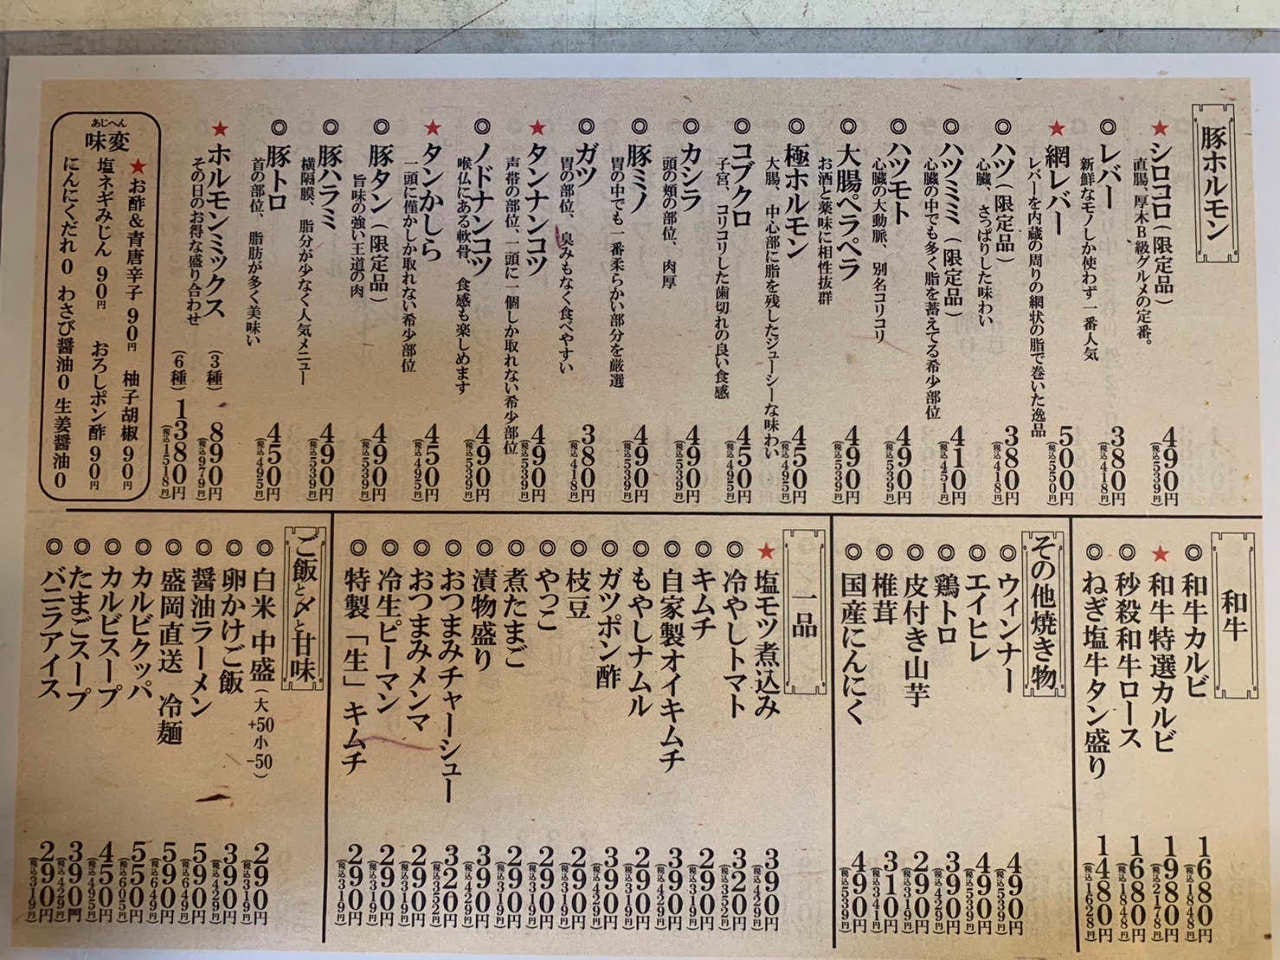 豚ホルモン
★シロコロ（限定品）
直腸、厚木B級グルメの定番。
490円
（税込539円）
◎レバー
新鮮なモノしか使わず一番人気
380円
（税込418円）
★網レバー
レバーを内蔵の周りの網状の脂で巻いた逸品
500円
（税込550円）
◎ハツ（限定品）
心臓、さっぱりした味わい
380円
（税込418円）
◎ハツミミ（限定品）
心臓の中でも多く脂を蓄えてる希少部位
410円
（税込451円）
◎ハツモト
心臓の大動脈、別名コリコリ
490円
（税込539円）
◎大腸ペラペラ
お酒と薬味に相性抜群
490円
（税込539円）
◎極ホルモン
大腸、中心部に脂を残したジューシーな味わい
450円
（税込495円）
◎コブクロ
子宮、コリコリした歯切れの良い食感
450円
（税込495円）
◎カシラ
頭の頬の部位、肉厚
490円
（税込539円）
◎豚ミノ
胃の中でも一番柔らかい部分を厳選
490円
（税込539円）
◎ガツ
胃の部位、臭みもなく食べやすい
380円
（税込418円）
★タンナンコツ
声帯の部位、一頭に一個しか取れない希少部位
490円
（税込539円）
◎ノドナンコツ
喉仏にある軟骨、食感も楽しめます
490円
（税込539円）
★タンかしら
一頭に僅かしか取れない希少部位
450円
（税込495円）
◎豚タン（限定品）
旨味の強い王道の肉
490円
（税込539円）
◎豚ハラミ
横隔膜、脂分が少なく人気メニュー
490円
（税込539円）
◎豚トロ
首の部位、脂肪が多く美味い
450円
（税込495円）
★ホルモンミックス
その日のお得な盛り合わせ
（3種）890円
（税込979円）
（6種）1380円
（税込1518円）
あじへん
味変
★お酢＆青唐辛子90円 柚子胡椒90円
塩ネギみじん90円 おろしポン酢90円
にんにくだれ0 わさび醤油0 生姜醤油0
和牛
◎和牛カルビ
1680円
（税込1848円）
★和牛特選カルビ
1980円
（税込2178円）
◎秒殺和牛ロース
1680円
（税込1848円）
◎ねぎ塩牛タン盛り
1480円
（税込1628円）
その他焼き物
◎ウィンナー
490円
（税込539円）
◎エイヒレ
490円
（税込539円）
◎鶏トロ
390円
（税込429円）
◎皮付き山芋
290円
（税込319円）
◎椎茸
310円
（税込341円）
◎国産にんにく
490円
（税込539円）
一品
★塩モツ煮込み
390円
（税込429円）
◎冷やしトマト
320円
（税込352円）
◎キムチ
290円
（税込319円）
◎自家製オイキムチ
390円
（税込429円）
◎もやしナムル
290円
（税込319円）
◎ガツポン酢
390円
（税込429円）
◎枝豆
290円
（税込319円）
◎やっこ
290円
（税込319円）
◎煮たまご
290円
（税込319円）
◎漬物盛り
390円
（税込429円）
◎おつまみチャーシュー
320円
（税込352円）
◎おつまみメンマ
290円
（税込319円）
◎冷生ピーマン
290円
（税込319円）
◎特製「生」キムチ
290円
（税込319円）
ご飯と〆と甘味
◎白米 中盛（大+50小-50）
290円
（税込319円）
◎卵かけご飯
390円
（税込429円）
◎醤油ラーメン
590円
（税込649円）
◎盛岡直送 冷麺
590円
（税込649円）
◎カルビクッパ
550円
（税込605円）
◎カルビスープ
450円
（税込495円）
◎たまごスープ
390円
（税込429円）
◎バニラアイス
290円
（税込319円）